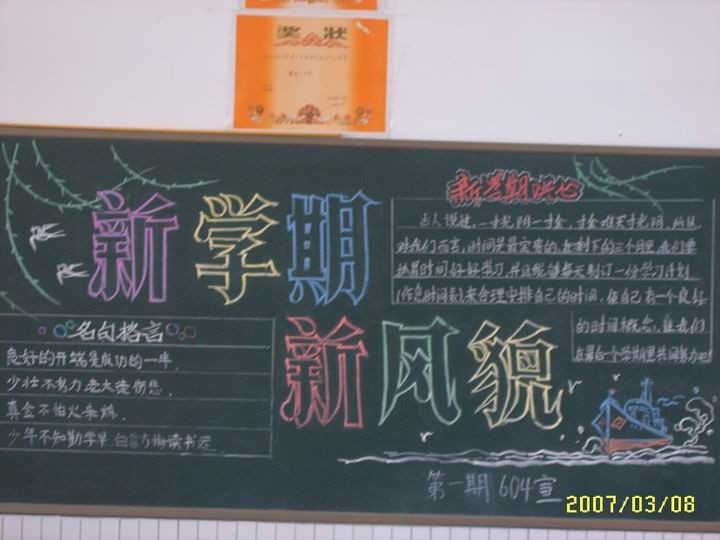 奖状
新学期
新风貌
新学期决心
古人说过,一寸光阴一寸金,寸金难买寸光阴,
对我们而言,时间是最宝贵的,在剩下的三个月里,我们要
好好学习,并且能够每天制订一份学习计划
(作息时间表)来合理安排自己的时间,使自己有一个良好
的时间概念,让我们
在最后一个学期里共同努力吧!
名句格言
良好的开端是成功的一半.
少壮不努力老大徒伤悲.
真金不怕火来炼.
少年不知勤学早,白首方悔读书迟.
第一期 604宣
2007/03/08